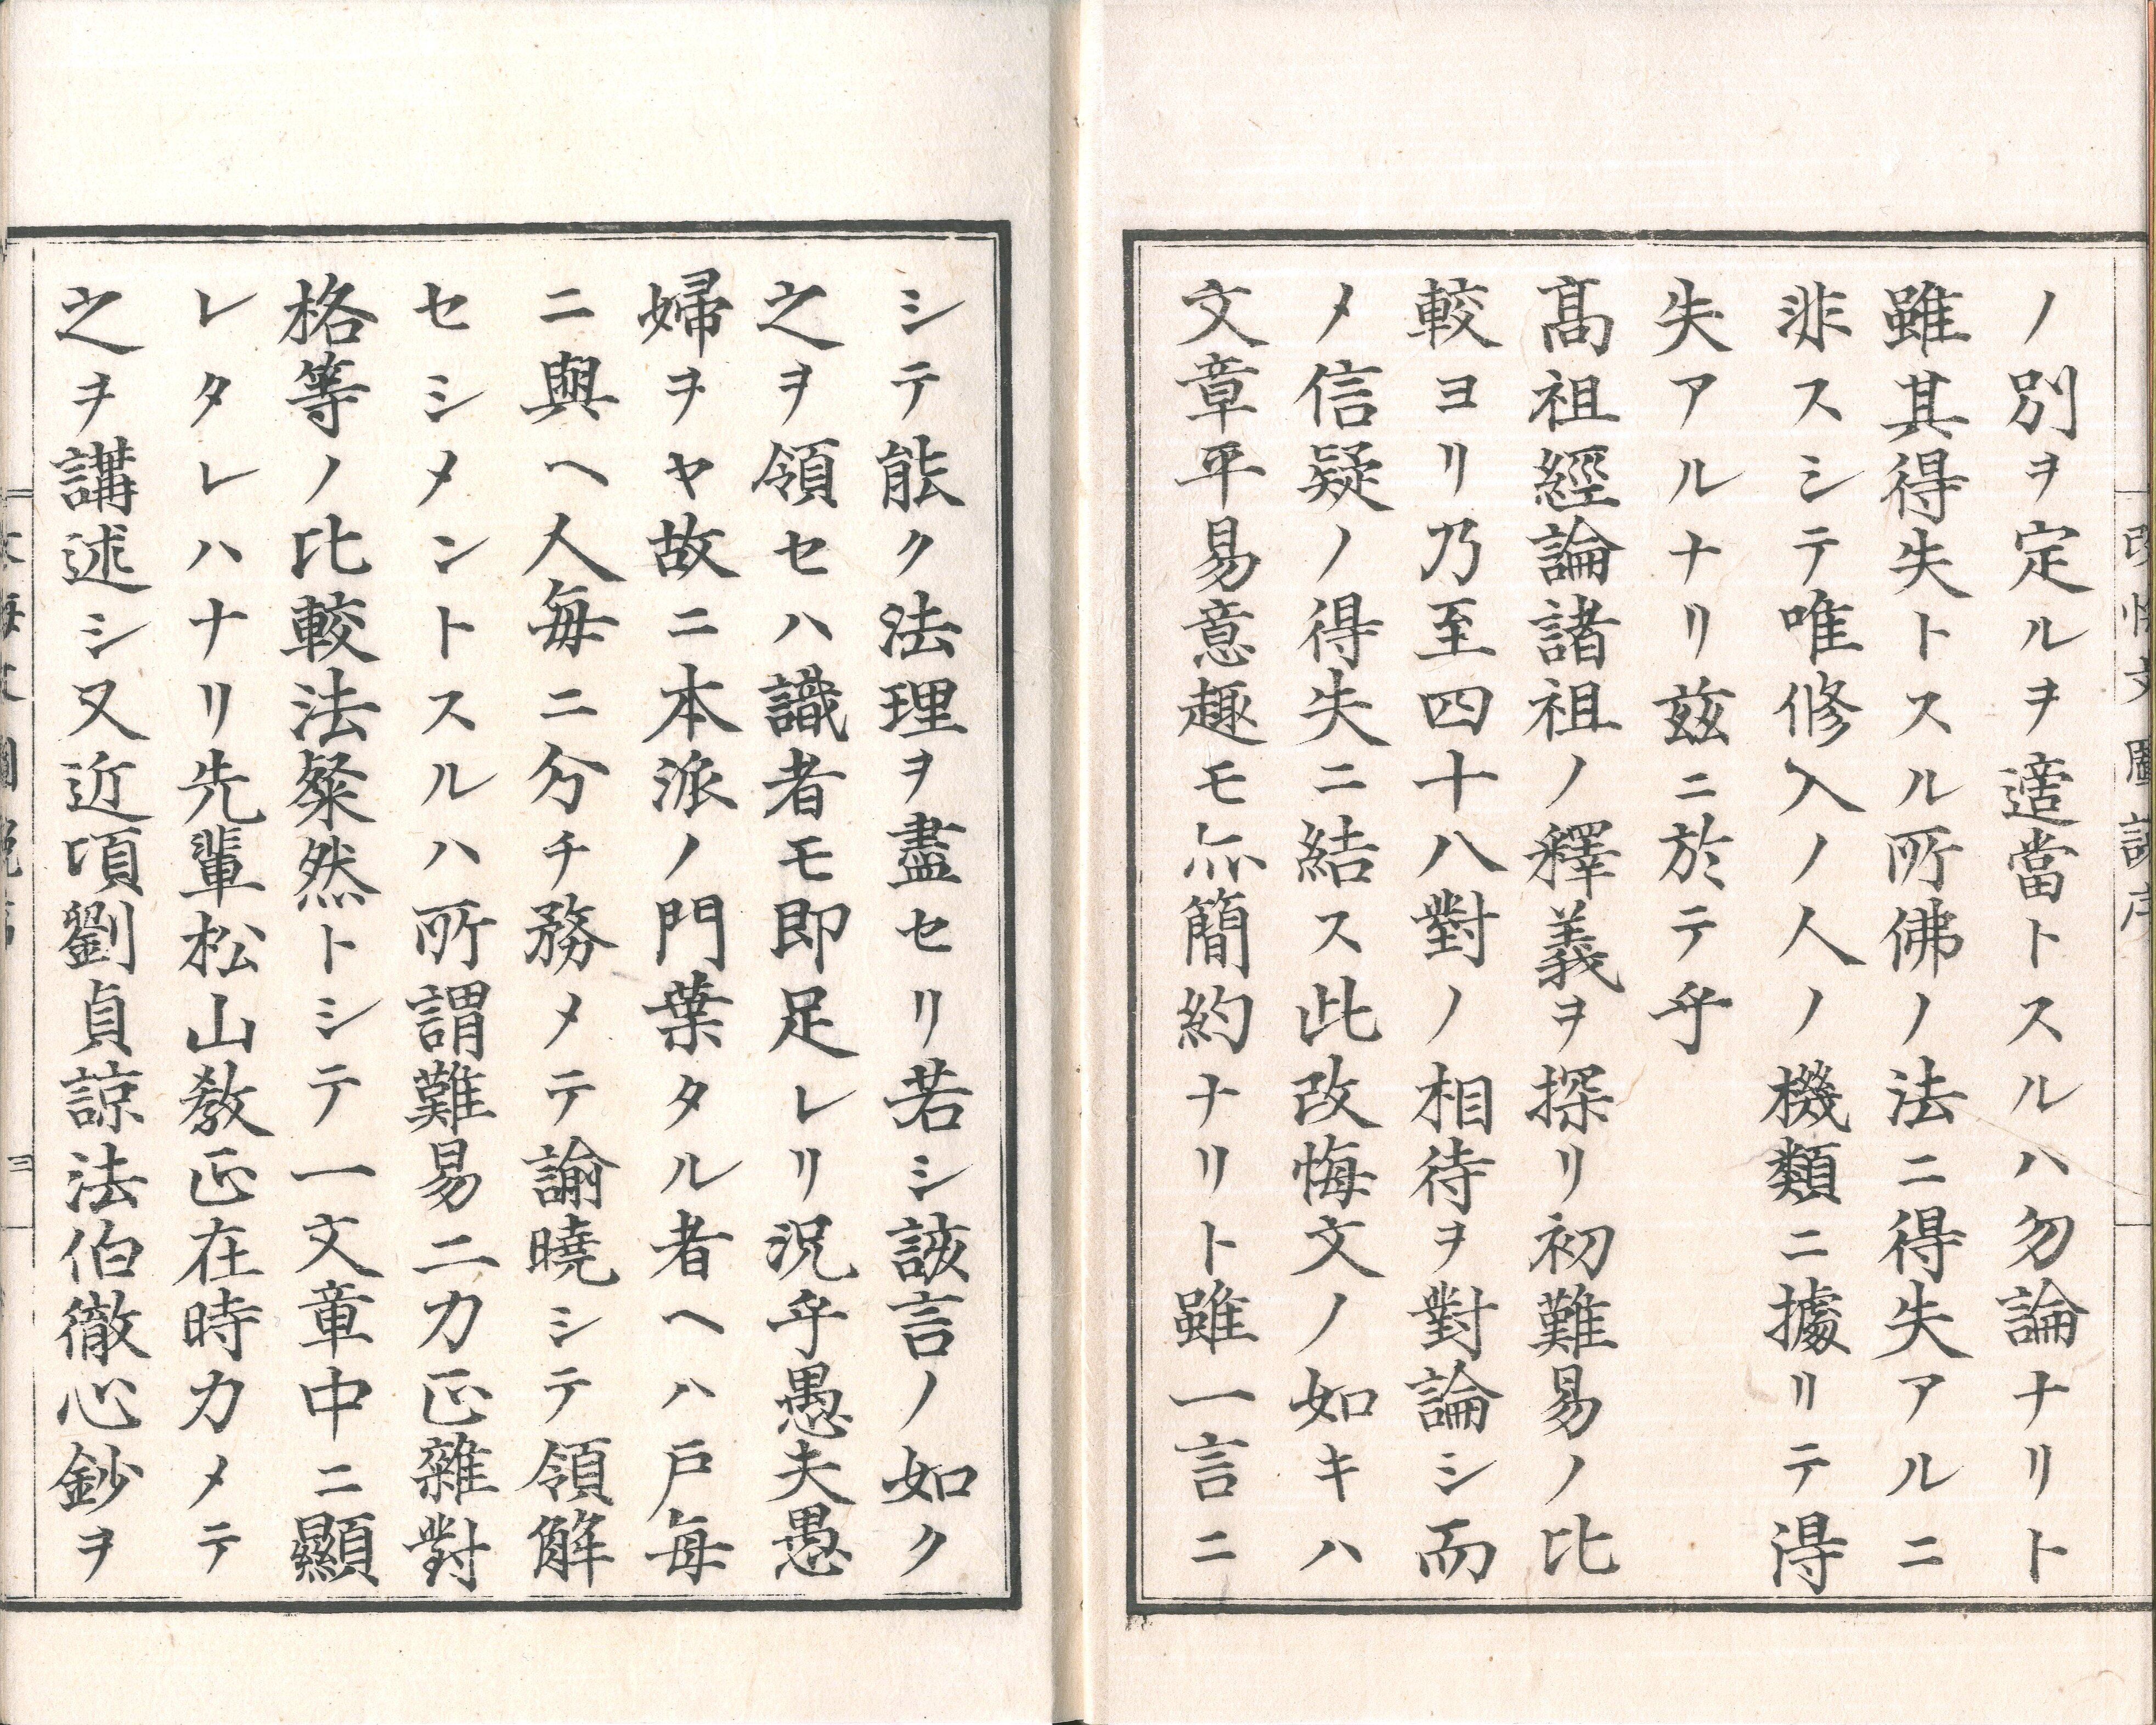 ノ別ヲ定ルヲ適當トスルハ勿論ナリト
雖其得失トスル所佛ノ法ニ得失アルニ
非スシテ唯修入ノ人ノ機類ニ據リテ得
失アルナリ茲ニ於テ乎
髙祖經論諸祖ノ釋義ヲ探リ初難易ノ比
較ヨリ乃至四十八對ノ相待ヲ對論シ而
メ信疑ノ得失ニ結ス此改悔文ノ如キハ
文章平易意趣モ亦簡約ナリト雖一言ニ
シテ能ク法理ヲ盡セリ若シ該言ノ如ク
之ヲ領セハ識者モ即足レリ況乎愚夫愚
婦ヲヤ故ニ本派ノ門葉タル者ヘハ戸毎
ニ與ヘ人毎ニ分チ務メテ諭曉シテ領解
セシメントスルハ所謂難易二力正雜對
格等ノ比較法粲然トシテ一文章中ニ顯
レタレハナリ先輩松山教正在時力メテ
之ヲ講述シ又近項劉貞諒法伯徹心鈔ヲ
三